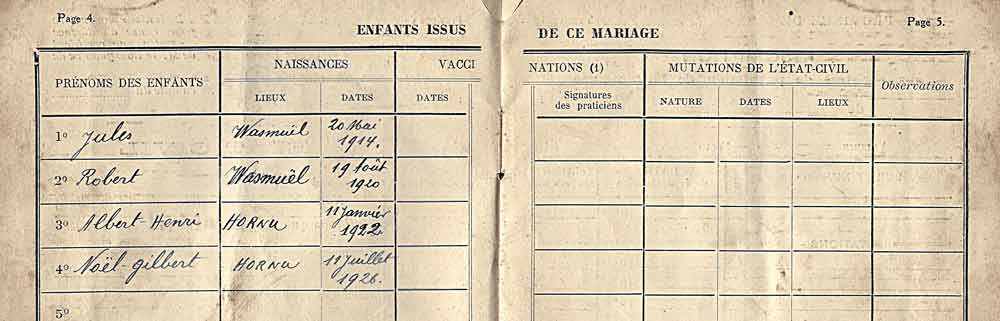 Page 4.
Page 5.
ENFANTS ISSUS DE CE MARIAGE
PRÉNOMS DES ENFANTS
NAISSANCES
VACCI
NATIONS (1)
MUTATIONS DE L'ÉTAT-CIVIL
Observations
LIEUX
DATES
DATES
Signatures
des praticiens
NATURE
DATES
LIEUX
1º Jules Wasmuël 20 Mai
1914.
2º Robert Wasmuël 19 Août
1920
3º Albert-Henri HORNU 11 Janvier
1922
4º Noël-gilbert HORNU 11 Juillet
1926.
5º